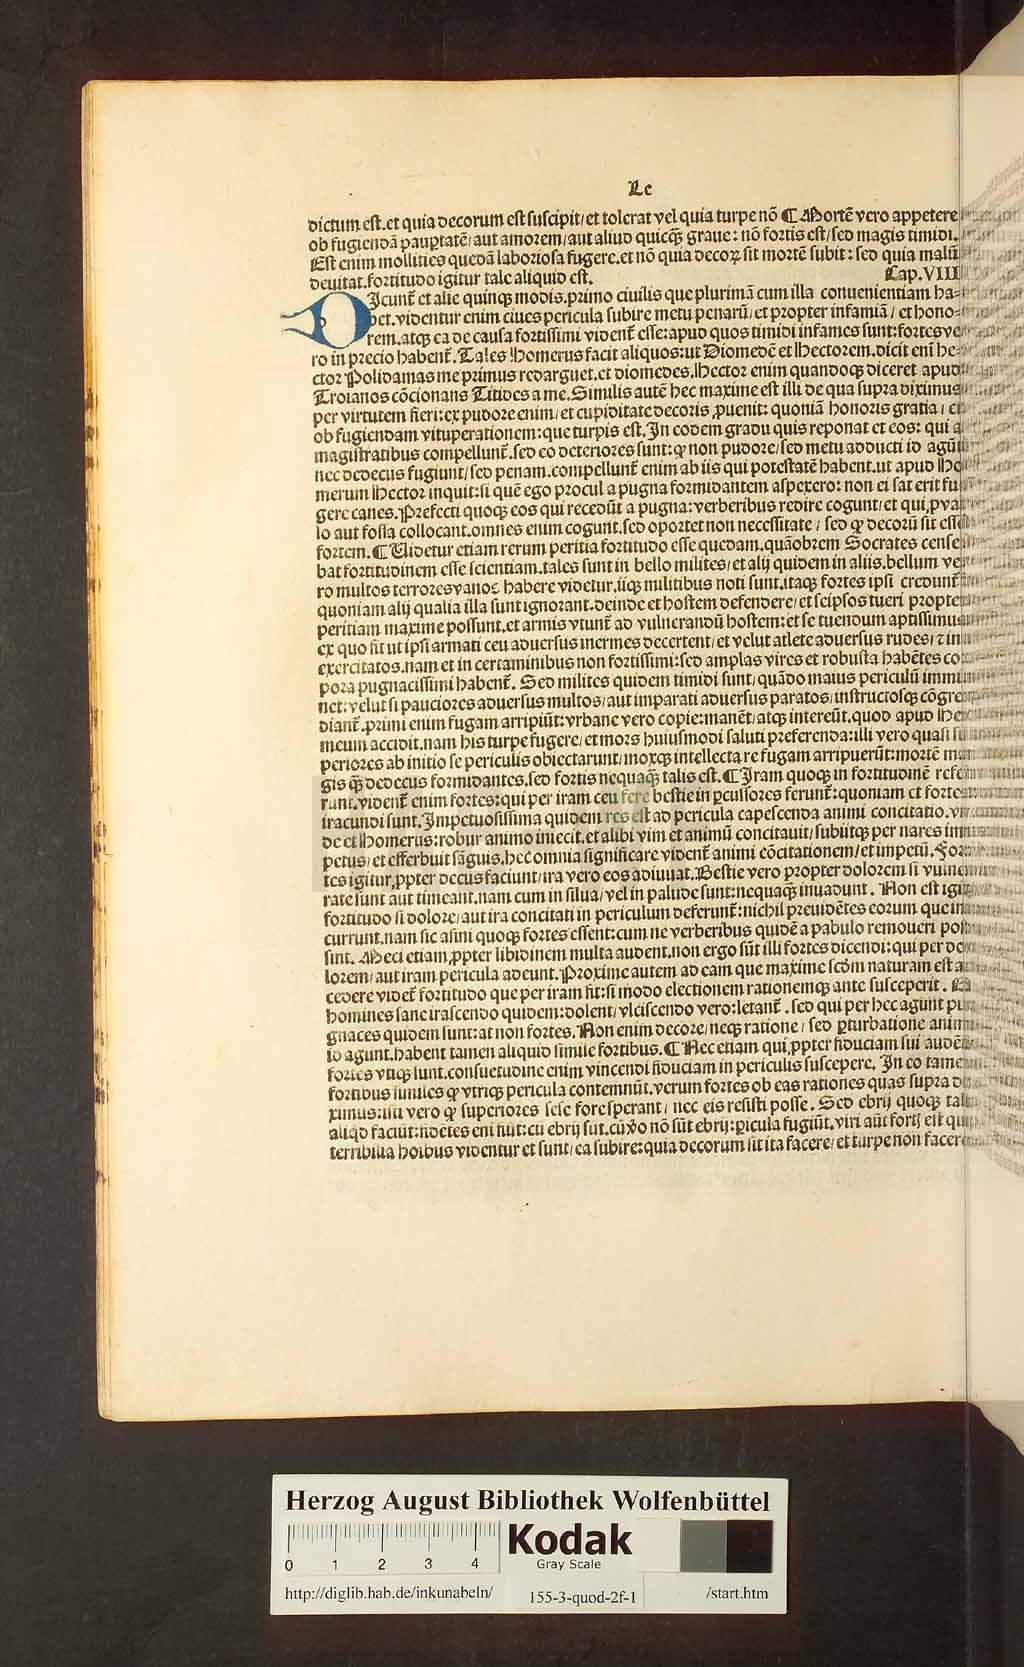 Le
dictum est.et quia decorum est suscipit/et tolerat vel quia turpe nō ¶ Mortē vero appetere
ob fugiendā pauptatē/aut amorem/aut aliud quicqȝ graue: nō fortis est/sed magis timidi.
Est enim mollities quedā laboriosa fugere.et nō quia decoꝝ sit mortē subit: sed quia malū
deuitat.fortitudo igitur tale aliquid est. Cap.VIII
DIcunt̄ et alie quinqȝ modis.primo ciuilis que plurimā cum illa conuenientiam ha-
bet.videntur enim ciues pericula subire metu penarū/et propter infamiā/et hono-
rem.atqȝ ea de causa fortissimi vident̄ esse:apud quos timidi infames sunt:fortes ve
ro in precio habent̄.Tales Homerus facit aliquos:ut Diomedē et Hectorem.dicit eni he-
ctor Polidamas me primus redarguet.et diomedes.Hector enim quandoqȝ diceret apud
Troianos cōcionans Titides a me.Similis autē hec maxime est illi de qua supra diximus
per virtutem fieri:ex pudore enim/et cupiditate decoris ꝓuenit: quoniā honoris gratia/et
ob fugiendam vituperationem:que turpis est.In eodem gradu quis reponat et eos: qui a
magistratibus compellunt̄.sed eo deteriores sunt:qꝫ non pudore/sed metu adducti id agūt
nec dedecus fugiunt/sed penam.compellunt̄ enim ab iis qui potestatē habent.ut apud Ho
merum Hector inquit:si quē ego procul a pugna formidantem aspexero: non ei sat erit fu
gere canes.Prefecti quoqȝ eos qui recedūt a pugna:verberibus redire cogunt/et qui,p va
lo aut fossa collocant.omnes enim cogunt.sed oportet non necessitate/sed qꝫ decorū sit esse
fortem.¶ Videtur etiam rerum peritia fortitudo esse quedam.quāobrem Socrates cense
bat fortitudinem esse scientiam.tales sunt in bello milites/et alij quidem in aliis.bellum ve
ro multos terrores vanos habere videtur.iiqȝ militibus noti sunt.itaqȝ fortes ipsi credunt̄
quoniam alij qualia illa sunt ignorant.deinde et hostem defendere/et seipsos tueri propter
peritiam maxime possunt.et armis vtunt̄ ad vulnerandū hostem:et se tuendum aptissimus
ex quo fit ut ipsi armati ceu aduersus inermes decertent/et velut atlete aduersus rudes/⁊ in
exercitatos.nam et in certaminibus non fortissimi:sed amplas vires et robusta habētes co
pora pugnacissimi habent̄. Sed milites quidem timidi sunt/quādo maius periculū immi
net:velut si pauciores aduersus multos/aut imparati aduersus paratos/instructosqȝ cōgre
diant̄.primi enim fugam arripiūt:vrbane vero copie:manēt/atqȝ intereūt.quod apud He
meum accidit.nam his turpe fugere/et mors huiusmodi saluti preferenda:illi vero quasi su
periores ab initio se periculis obiectarunt/moxqȝ intellecta re fugam arripuerūt:mortē ma
gis qȝ dedecus formidantes.sed fortis nequaqȝ talis est.¶ Iram quoqȝ in fortitudinē refe
runt.vident̄ enim fortes:qui per iram ceu fere bestie in ꝑcussores ferunt̄:quoniam et fortes
iracundi sunt.Impetuosissima quidem res est ad pericula capescenda animi concitatio.vn
de et Homerus:robur animo iniecit.et alibi vim et animū concitauit/subiitqȝ per nares im
petus/et efferbuit sāguis.hec omnia significare vident̄ animi cōcitationem/et impetū.For
tes igitur,ꝓpter decus faciunt/ira vero eos adiuuat.Bestie vero propter dolorem si vulne
rate sunt aut timeant.nam cum in silua/vel in palude sunt:nequaqȝ inuadunt. Non est igit
fortitudo si dolore/aut ira concitati in periculum deferunt̄:nichil preuidētes eorum que in
currunt.nam sic asini quoqȝ fortes essent:cum ne verberibus quidē a pabulo remoueri pos
sint. Meci etiam,ꝓpter libidinem multa audent.non ergo sūt illi fortes dicendi:qui per do
lorem/aut iram pericula adeunt.Proxime autem ad eam que maxime scḋm naturam est a
cedere videt̄ fortitudo que per iram fit:si modo electionem rationemqȝ ante susceperit.
homines sane irascendo quidem:dolent/vlciscendo vero:letant̄. sed qui per hec agunt pu
gnaces quidem sunt:at non fortes.Non enim decore/neqȝ ratione/sed ꝑturbatione anim
id agunt.habent tamen aliquid simile fortibus.¶ Nec etiam qui,ꝓpter fiduciam sui audēt
fortes vtiqȝ sunt.consuetudine enim vincendi fiduciam in periculis suscepere. In eo tame
fortibus similes qꝫ vtriqȝ pericula contemnūt.verum fortes ob eas rationes quas supra di
ximus:isti vero qꝫ superiores sese fore sperant/nec eis resisti posse. Sed ebrij quoqȝ tal
aliqd faciūt:fidētes eni fiūt:cū ebrij sūt.cū v̊o nō sūt ebrij:ꝑicula fugiūt.viri aūt fortj est qui
terribilia hoibus videntur et sunt/ea subire:quia decorum sit ita facere/et turpe non facere
Herzog August Bibliothek Wolfenbüttel
0 1 2 3 4 Kodak
Gray Scale
http://diglib.hab.de/inkunabeln/ 155-3-quod-2f-1 /start.htm